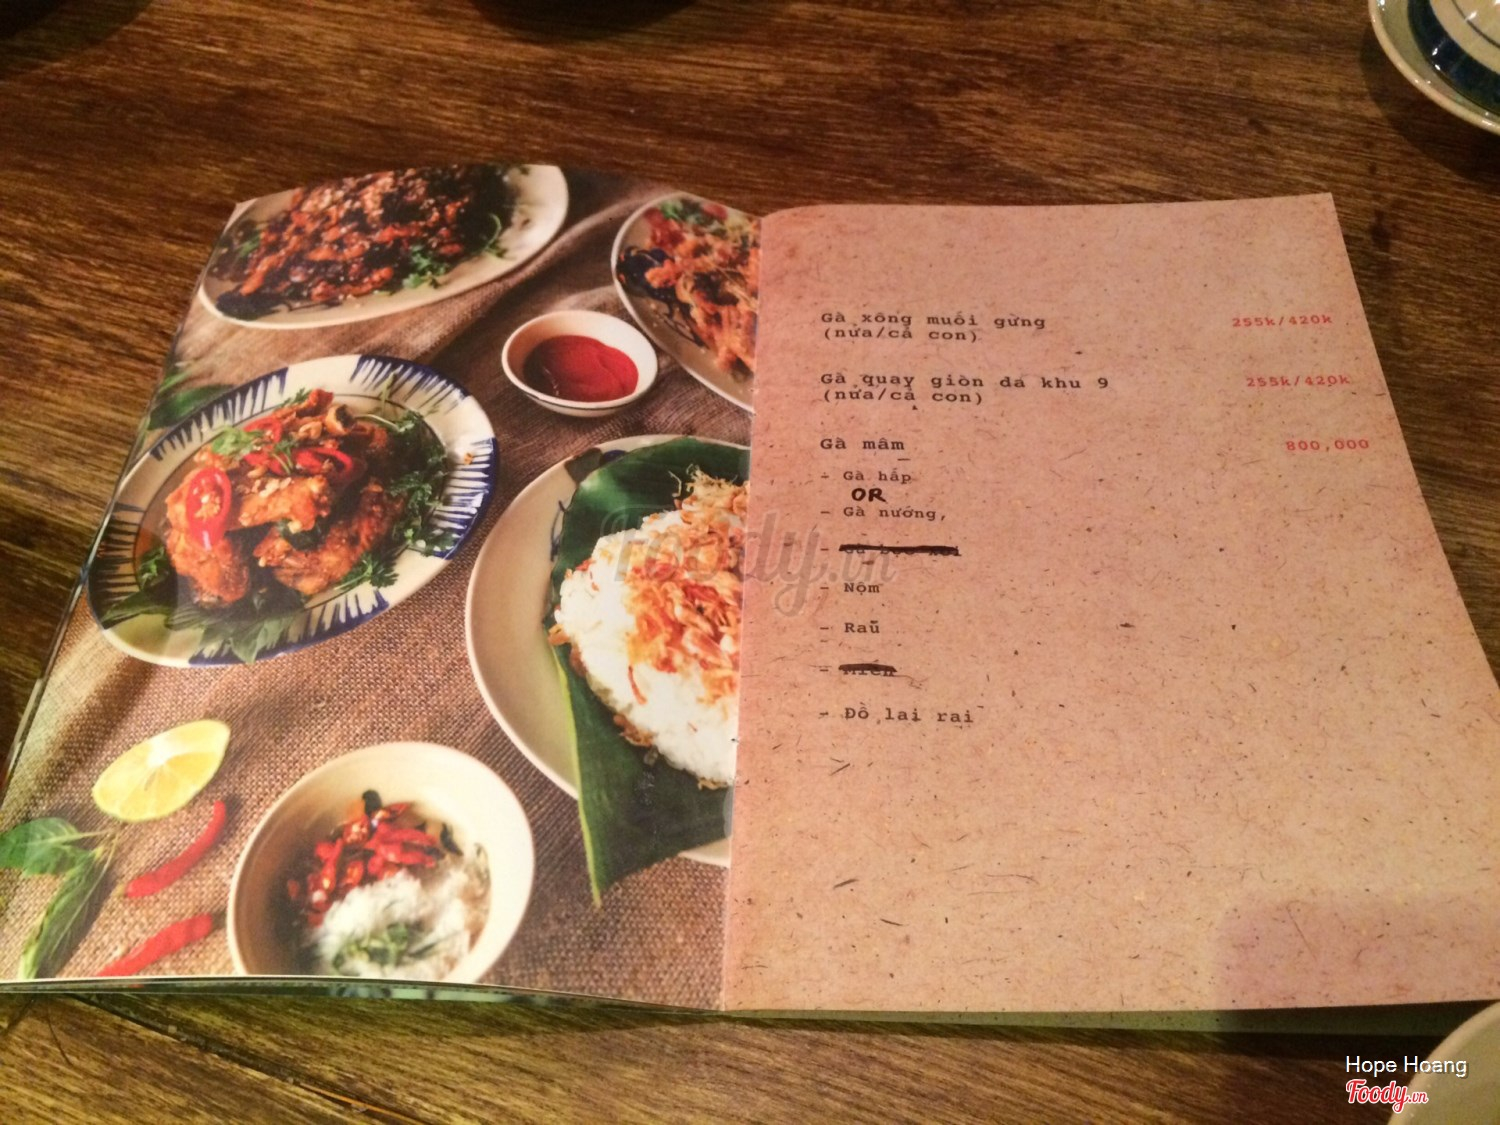 Gà xông muối gừng 255k/420k
(nửa/cả con)
Gà quay giòn da khu 9 255k/420k
(nửa/cả con)
Gà mâm 800,000
- Gà hấp
OR
- Gà nướng,
- Nộm
- Rau
- Miến
- Đồ lai rai
Foody.vn
Hope Hoang
Foody.vn